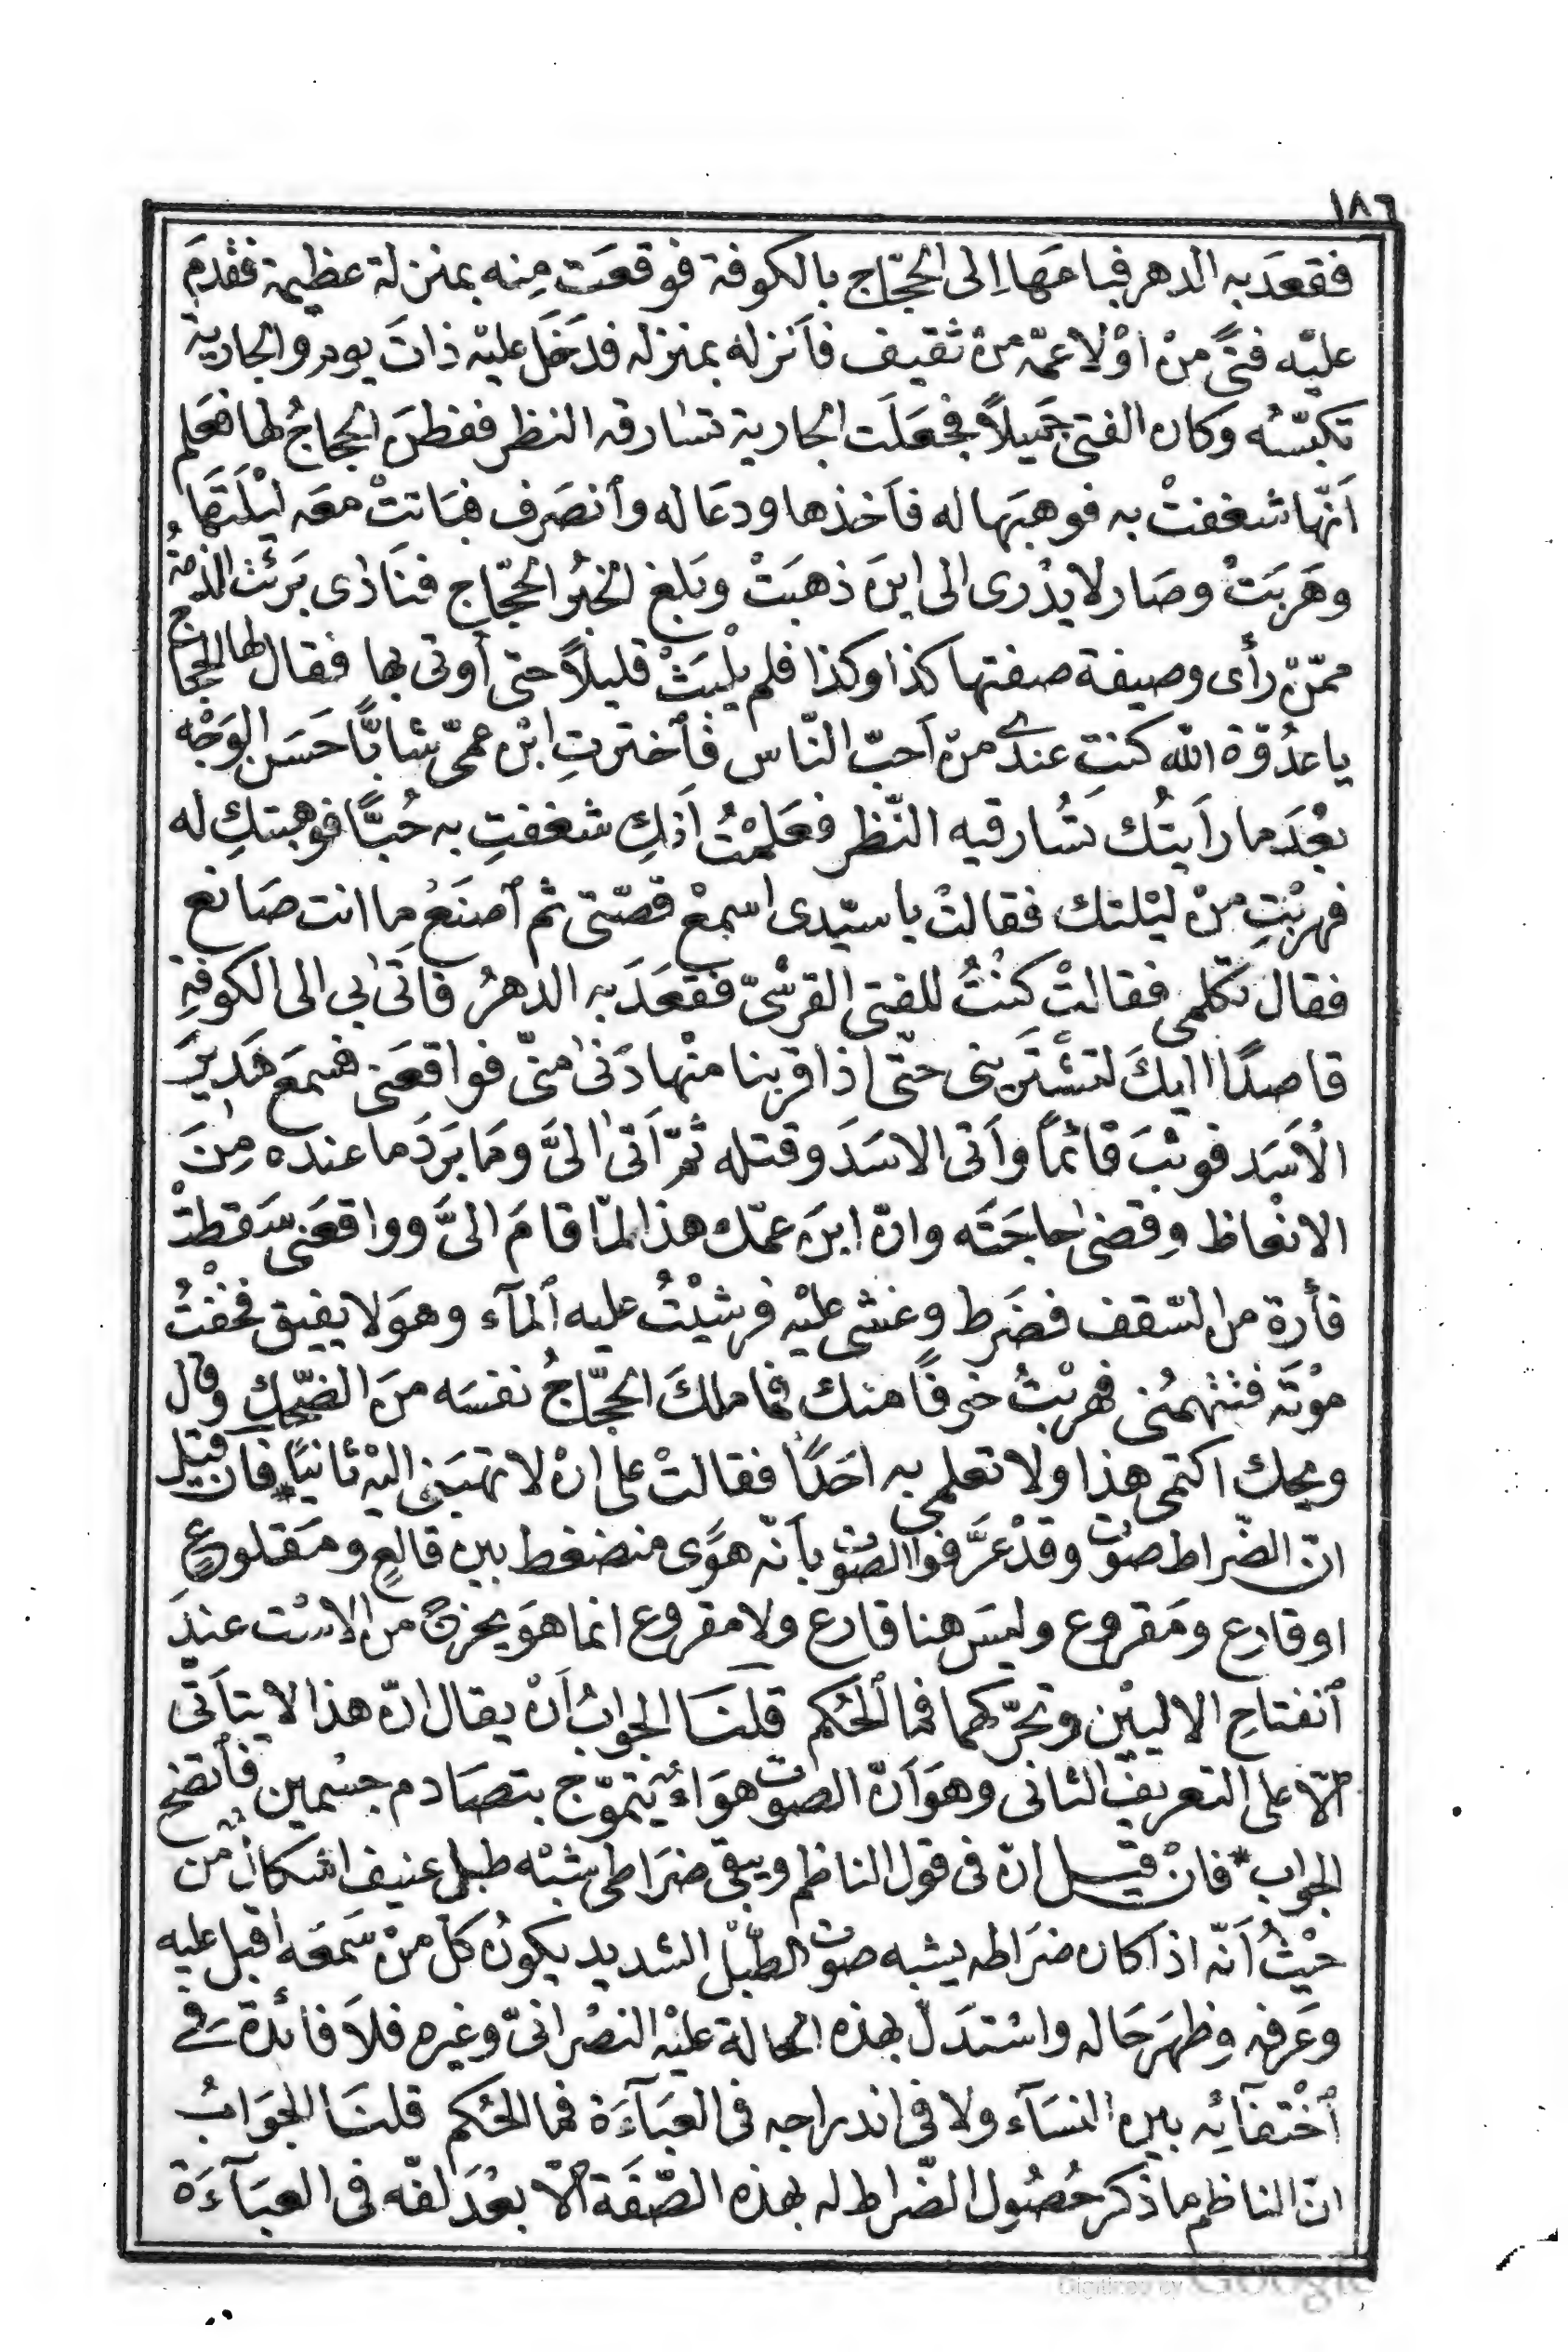 ١٨٦
فقعدَ به الدهر فباعَها اِلى الحجّاج بالكوفة فوقعَت مِنه بمنزلة عظيمة فقدِمَ
عليْه فتًى منْ اوْلاد عمّه منْ ثقيف فاَنزله بمنزله فدَخَل عليْه ذاتَ يوم والجارية
تكبّسُه وكان الفتى جَميلاً فجعَلَت الجارية تسٰارقه النظر ففطنَ الحجاجُ لها فعَلم
اَنّها شغفتْ به فوهبَها له فاَخذها ودعَا له وٱنصَرف فبَاتتْ معَه ليْلَتَها
وهَربَتْ وصَار لا يدْرى الى اينَ ذهبَتْ وبَلغ الخبْرُ الحجّاج فنَادٰى بَرئَت الذمّةُ
ممّنْ رأى وصيفة صفتها كذا وكذا فلم يلْبَثْ قليلاً حتى أوتى بها فقال لها الحجاج
يا عدُوّة الله كنتِ عندى منْ اَحبّ النّاس فٱخترتِ ابْن عمىّ شابًّا حَسَن الوَجْه
بعْدَ ما راَيتُك تُسَارقيه النّظر فعَلمْتُ اَنكِ شغفتِ به حُبًّا فوهبتكِ له
فهربْتِ منْ ليْلتك فقالتْ يا سيّدى اسمعْ قصّتى ثم ٱصنَعْ ما انت صَانع
فقال تكلمى فقالتْ كنْتُ للفتى القرشىّ فقعَدَ به الدهرُ فاَتىٰ بى الى الكوفةِ
قاصدًا اليكَ لتشْتَرينى حتّى اذا قربنا منْها دَنىٰ منّى فواقعَنى فسمعَ هَديرَ
الاَسَد فوثبَ قائماً واَتى الاسَدَ وقتله ثمّ اَتىٰ الىَّ ومَا برَدَ ما عنده مِنَ
الانْعاظ وقضىٰ حاجَتَه وانّ ابنَ عمّك هذا لمّا قامَ الىَّ وواقعَنى سَقطتْ
فأرة من السّقف فضَرط وغشى عليْه فرشيْتُ عليه ٱلمآء وهوَ لا يفيق فخفْتُ
موْتَه فتتّهمُنى فهربْتُ خوفًا منك فما ملكَ الحجّاجُ نفسَه منَ الضحك وقال
ويحك اكتمى هذا ولا تعلمى به احَدًا فقالتْ على انْ لا تهبَنى اليْه ثانيًا* فان قيل
انّ الضّراط صوْت وقدْ عَرَّفوا الصوْت باَنّه هوًى منضغط بين قالعٍ ومَقلوعٍ
او قارع ومَقروع وليسَ هنا قارع ولا مقروع انما هوَ يخرجُ من الاسْت عندَ
ٱنفتاحِ الاليتيْن وتحرّكهما فما ٱلحُكم قلنَا الجوابُ اَنْ يقال انّ هذا لا يتاَتّى
الاّ على التعريف الثانى وهوَ اَنّ الصوْت هوَاءٌ يَتموّج بتصَادم جسْمين فٱتضح
الجواب* فانْ قيل انّ فى قول الناظم ويبقى ضرَاطى شبْه طبل عنيف اشكالٌ من
حيْثُ اَنّه اذا كان ضرَاطه يشبه صوْت الطبْل الشديد يكونُ كلّ منْ سَمعَه اَقبل عليه
وعَرفه وظهَر حَاله واسْتدَلّ بهذه الحالة عليْه النصْرانىّ وغيره فلاَ فائدة فى
ٱخْتفآئِه بين النسَآء ولا فى اندراجه فى العبَآءَة فما الحُكم قلنَا الجَوَابُ
انّ الناظم ما ذكر حُصُول الضّراط له بهذه الصّفَة الاّ بعْدَ لفّه فى العبَآءَة
Digitized by Google